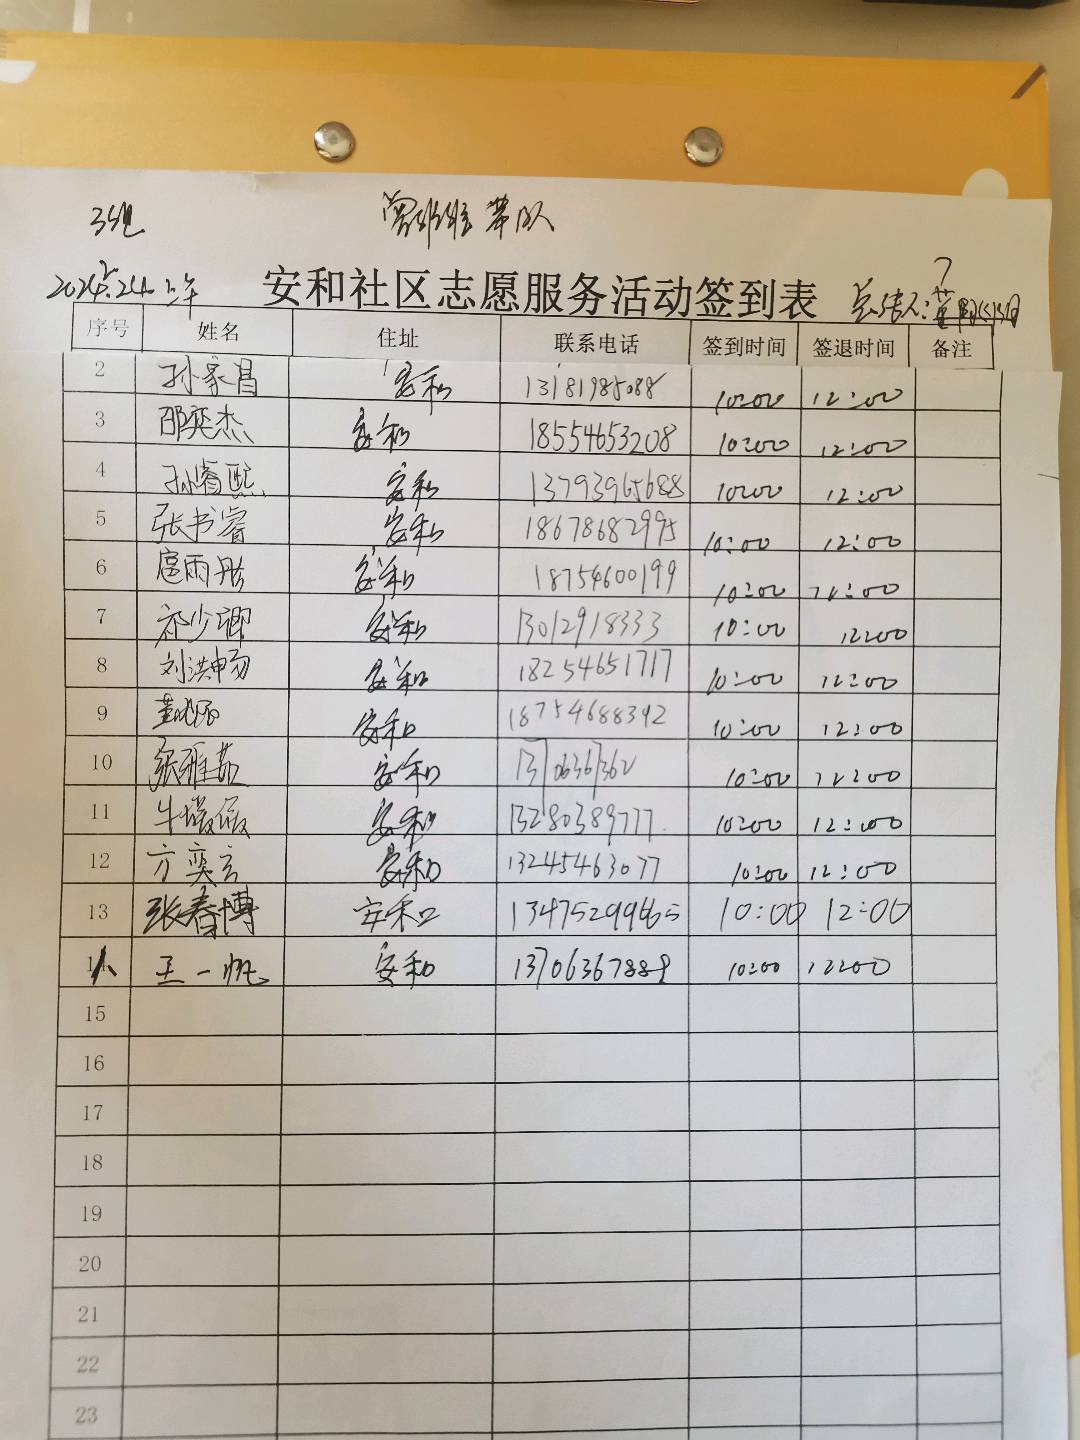 3组 带队
2024.2.24 上午 安和社区志愿服务活动签到表 总结人:
序号 姓名 住址 联系电话 签到时间 签退时间 备注
2 孙家昌 安和 13181985088 10:00 12:00
3 邵奕杰 安和 18554653208 10:00 12:00
4 孙睿熙 安和 13793965688 10:00 12:00
5 张书睿 安和 18678682995 10:00 12:00
6 扈雨彤 安和 18754600199 10:00 12:00
7 祁少卿 安和 13012918333 10:00 12:00
8 刘洪畅 安和 18254651717 10:00 12:00
9 安和 18754688392 10:00 12:00
10 张雅茹 安和 13706367362 10:00 12:00
11 牛 安和 13280389777 10:00 12:00
12 方奕言 安和 13245463077 10:00 12:00
13 张春博 安和 10:00 12:00
14 王一帆 安和 13706367889 10:00 12:00
15
16
17
18
19
20
21
22
23